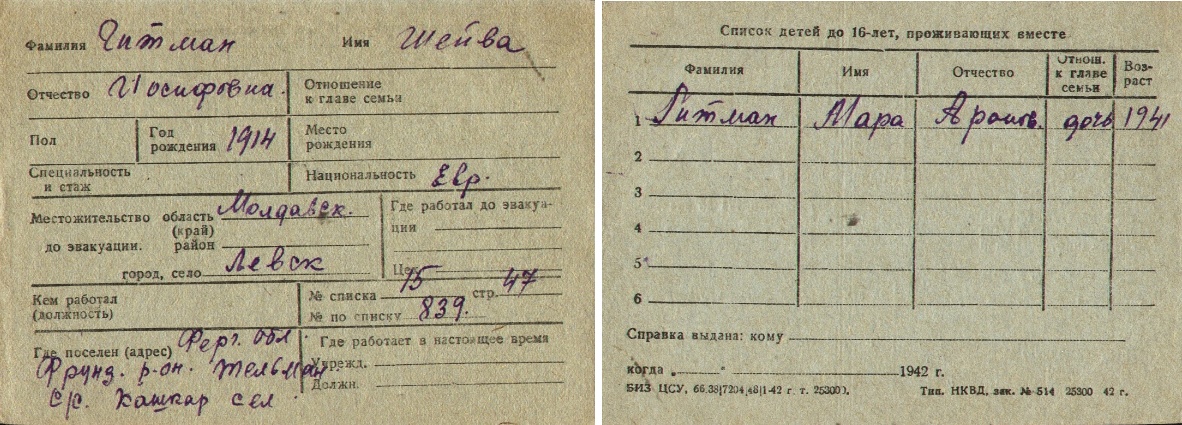 Фамилия Гитман Имя Шейва
Отчество Иосифовна. Отношение к главе семьи
Пол Год рождения 1914 Место рождения
Специальность и стаж Национальность Евр.
Местожительство до эвакуации. область (край) Молдавск.
район
город, село Левск
Где работал до эвакуации
Цех
Кем работал (должность)
№ списка 15 стр. 47
№ по списку 839.
Где поселен (адрес) Ферг. обл
Фрунд. р-он. Тельман.
с/с. Кашкар сел
Где работает в настоящее время
Учрежд.
Должн.
Список детей до 16-лет, проживающих вместе
Фамилия Имя Отчество Отнош. к главе семьи Возраст
1 Гитман Мара Аронов. дочь 1941
2
3
4
5
6
Справка выдана: кому
когда „ " 1942 г.
БИЗ ЦСУ, 66.38|7204,48|1-42 г. т. 25300. Тип. НКВД, зак. № 514 25300 42 г.